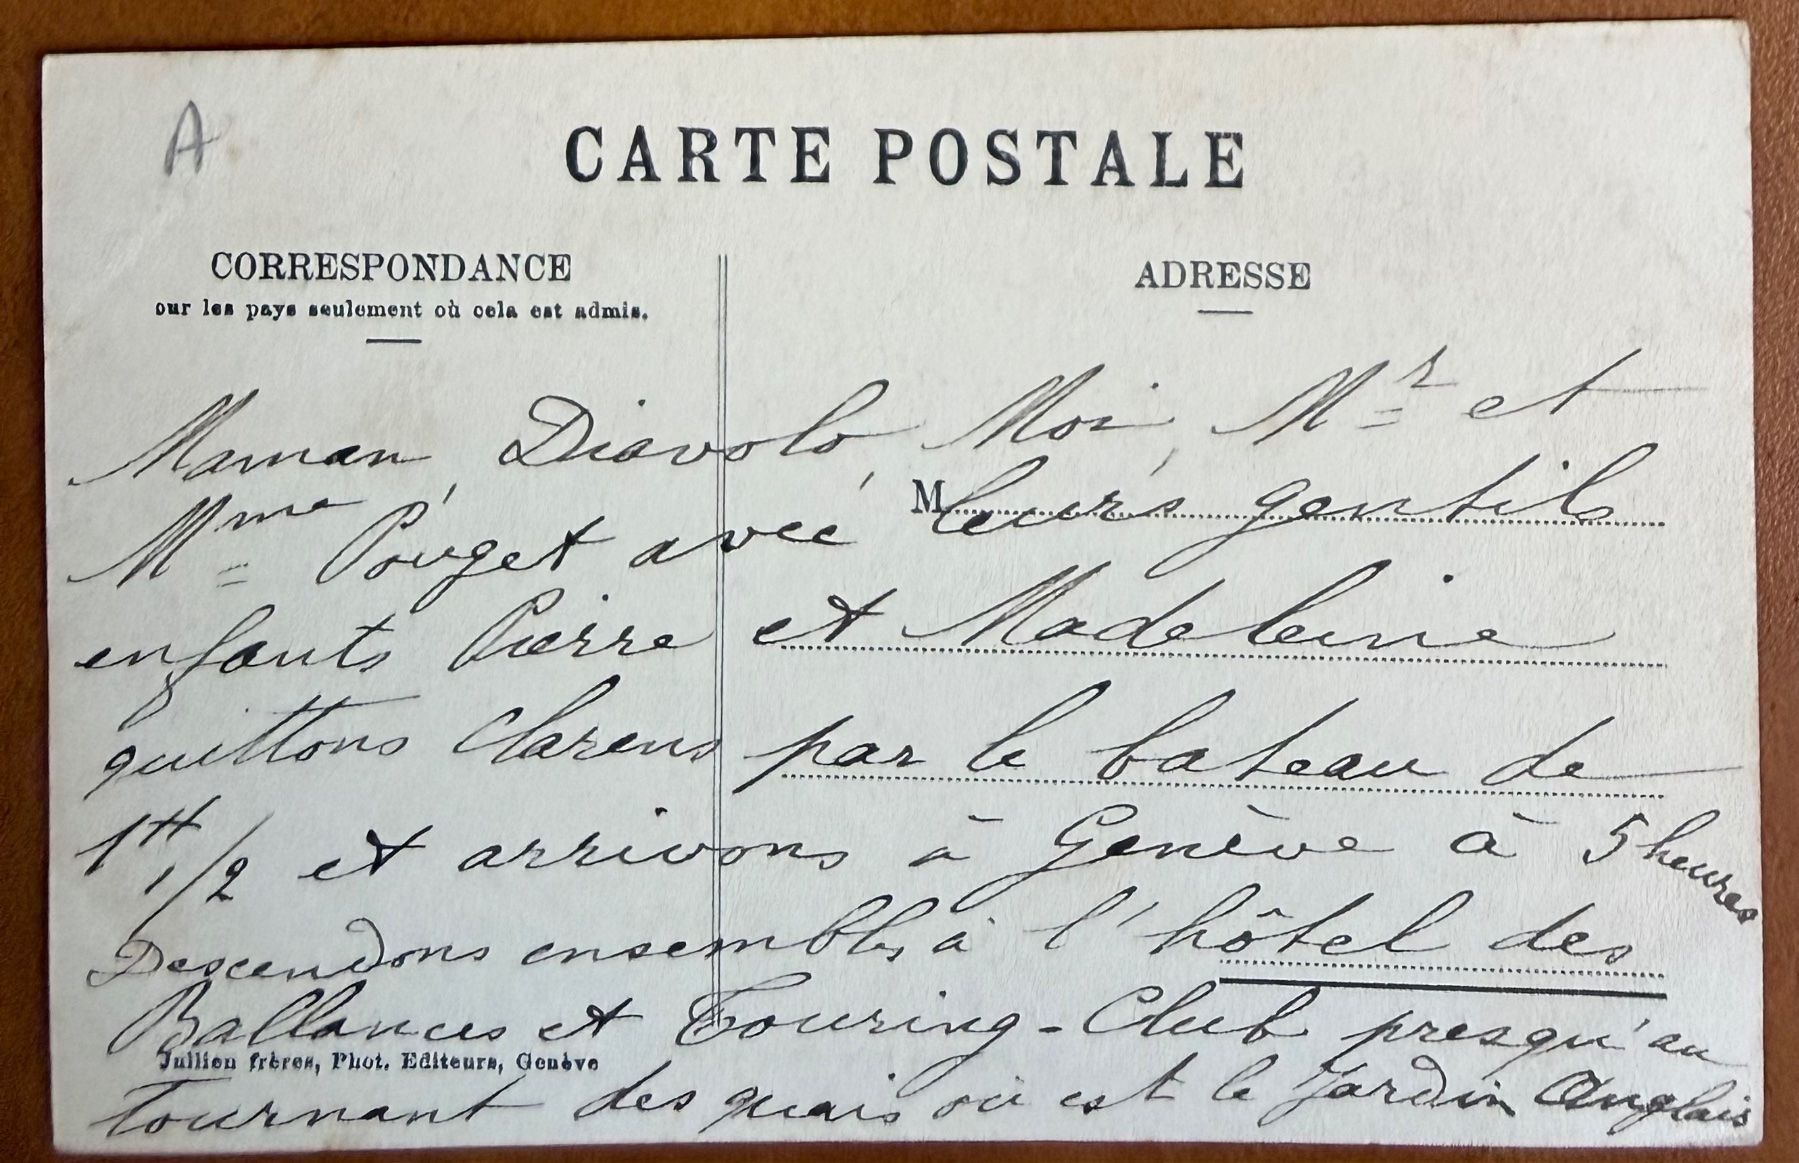 A
CARTE POSTALE
CORRESPONDANCE
our les pays seulement où cela est admis.
ADRESSE
Maman, Diavolo, Moi, Mr et
Mme Pouget avec leurs gentils
M
enfants Pierre et Madeleine
quittons Clarens par le bateau de
1H 1/2 et arrivons à Genève à 5 heures
Descendons ensembles à l'hôtel des
Ballances et Touring-Club presqu'au
Jullien frères, Phot. Editeurs, Genève
Tournant des quais où est le Jardin Anglais